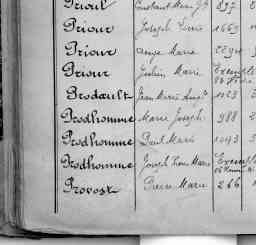 Prioul Constant Marie Jh 837
Priour Joseph Louis 1669
Priour Ange Marie 2294
Priour Julien Marie Exempté
Brodault Jean Marie Augte 1023
Prodhomme Marie Joseph 988 2
Prodhomme Paul Marie 1043 3
Prodhomme Joseph Marie Exempté
Provost Pierre Marie 266 1